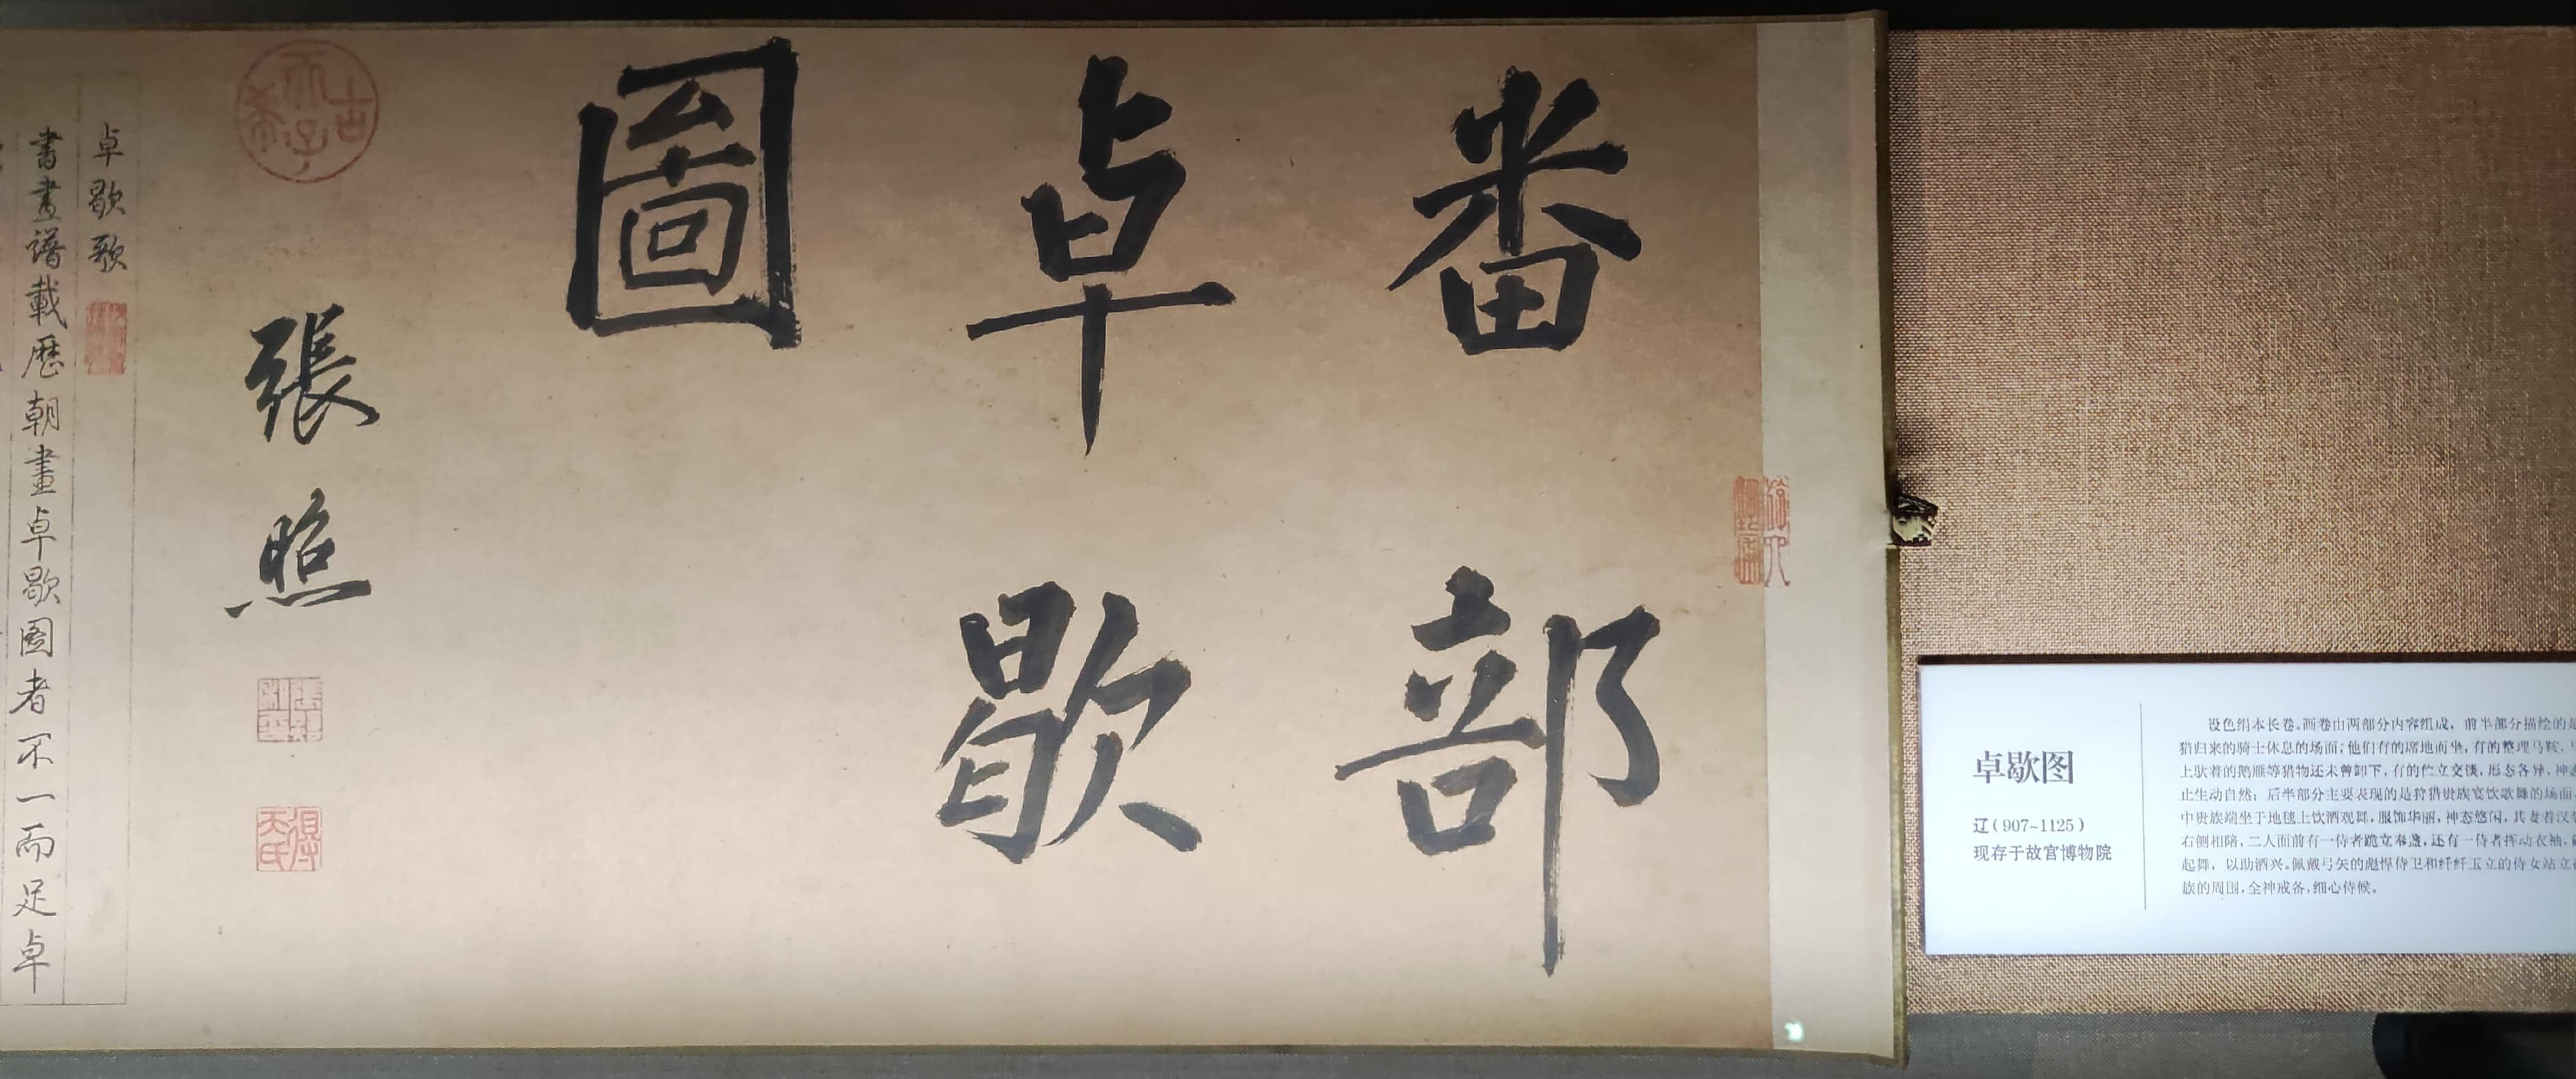 番部
卓歇
圖
古希天子
張照
張照之印
得天氏
卓歇歌
書畫譜載歷朝畫卓歇圖者不一而足卓
卓歇图
辽（907-1125）
现存于故宫博物院
设色绢本长卷。画卷由两部分内容组成，前半部分描绘的是
猎归来的骑士休息的场面；他们有的席地而坐，有的整理马鞍，
上驮着的鹅雁等猎物还未曾卸下，有的伫立交谈，形态各异，神态
止生动自然；后半部分主要表现的是狩猎贵族宴饮歌舞的场面，
中贵族端坐于地毯上饮酒观舞，服饰华丽，神态悠闲，其妻着汉
右侧相陪，二人面前有一侍者跪立奉盏，还有一侍者挥动衣袖，
起舞，以助酒兴。佩戴弓矢的彪悍侍卫和纤纤玉立的侍女站立
族的周围，全神戒备，细心侍候。